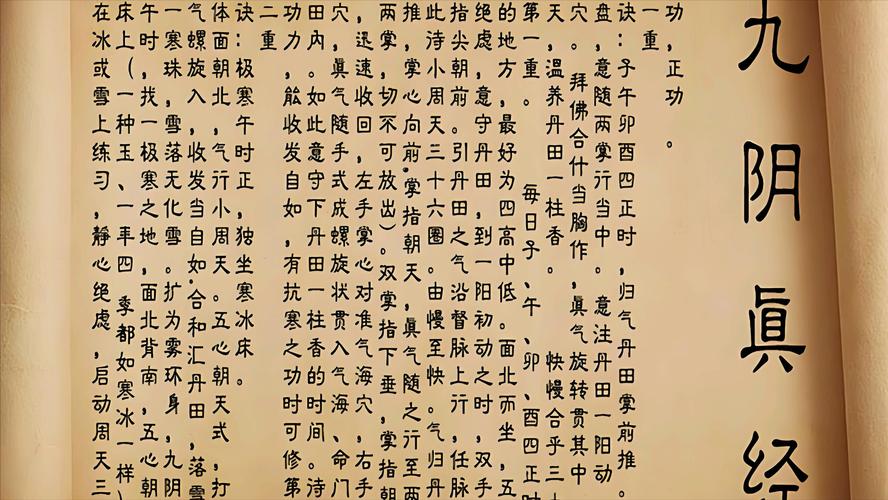 九阴眞经
功,正功。
一重
诀:子午卯酉四正时,归气丹田掌前推。
盘,意随两掌行当中。 意注丹田一阳动
穴。 拜佛合什当胸作,眞气旋转贯其中
天,温养丹田一柱香。 快慢合乎三十
第一重。 每日子、午、卯、酉四正时
的地方,最好为四高中低。面北而坐,五
绝虑,意守丹田,到一阳初动之时,双手
指尖朝前。引丹田之气沿督脉上行,任脉
此待小周天三十六圈。由慢至快。气归丹
推,掌心向前,掌指朝天,眞气随之行至两
两掌,切不可放出)。双掌指下垂,掌指朝
,迅速收回,左手掌心对准气海穴,右手
穴,眞气随手式成螺旋状贯入气海、命门
田內。如此意守下丹田一柱香的时间。待
功力,能收发自如,有抗寒之功时可修第
二重
诀:极寒午时正,独坐寒冰床。
体面朝北,气行小周天。五心朝天式,打
气螺旋入,收发当自如,合和汇丹田,落雪
一寒珠,雪落无化雪。扩为雾环身,九阴
午时,找一极寒之地,面北背南,五心朝
床上(一种玉、一年四 季都如寒冰一样)
在冰或雪上练习,静心绝虑,启动周天三